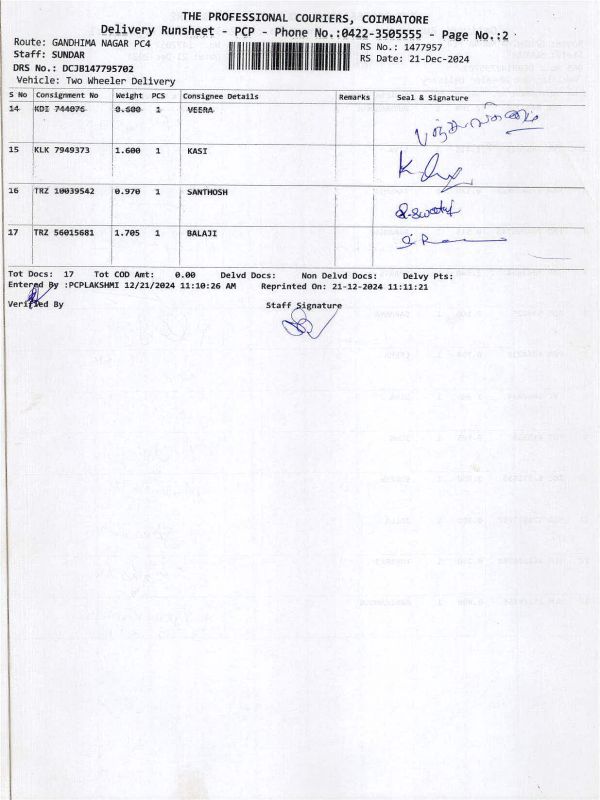 THE PROFESSIONAL COURIERS, COIMBATORE
Delivery Runsheet - PCP - Phone No.:0422-3505555 - Page No.:2
Route: GANDHIMA NAGAR PC4 RS No.: 1477957
Staff: SUNDAR RS Date: 21-Dec-2024
DRS No.: DCJB147795702
Vehicle: Two Wheeler Delivery
S No Consignment No Weight PCS Consignee Details Remarks Seal & Signature
14 KDI 744076 0.600 1 VEERA
15 KLK 7949373 1.600 1 KASI
16 TRZ 10039542 0.970 1 SANTHOSH
17 TRZ 56015681 1.705 1 BALAJI
Tot Docs: 17 Tot COD Amt: 0.00 Delvd Docs: Non Delvd Docs: Delvy Pts:
Entered By :PCPLAKSHMI 12/21/2024 11:10:26 AM Reprinted On: 21-12-2024 11:11:21
Verified By Staff Signature